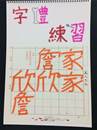 字體練習
家家
詹欣
欣詹